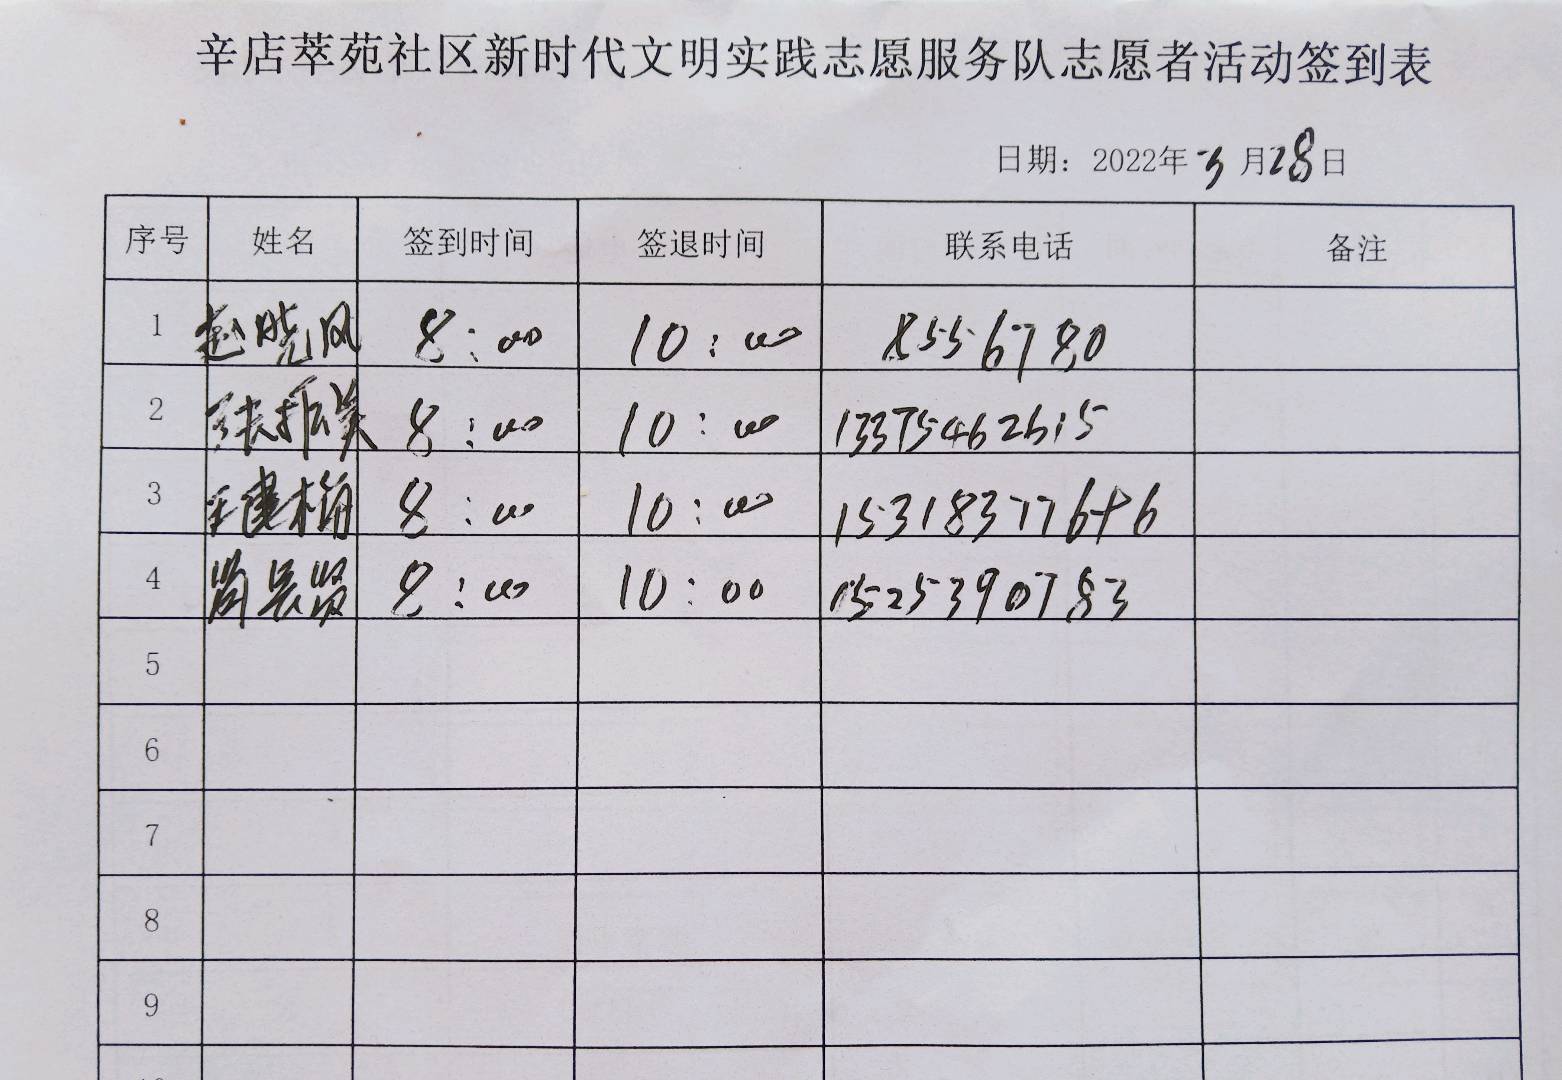 辛店萃苑社区新时代文明实践志愿服务队志愿者活动签到表
日期：2022年3月28日
序号 姓名 签到时间 签退时间 联系电话 备注
1 赵晓风 8:00 10:00 8556780
2 张振美 8:00 10:00 13375462615
3 王建梅 8:00 10:00 15318377646
4 8:00 10:00 1525390783
5
6
7
8
9